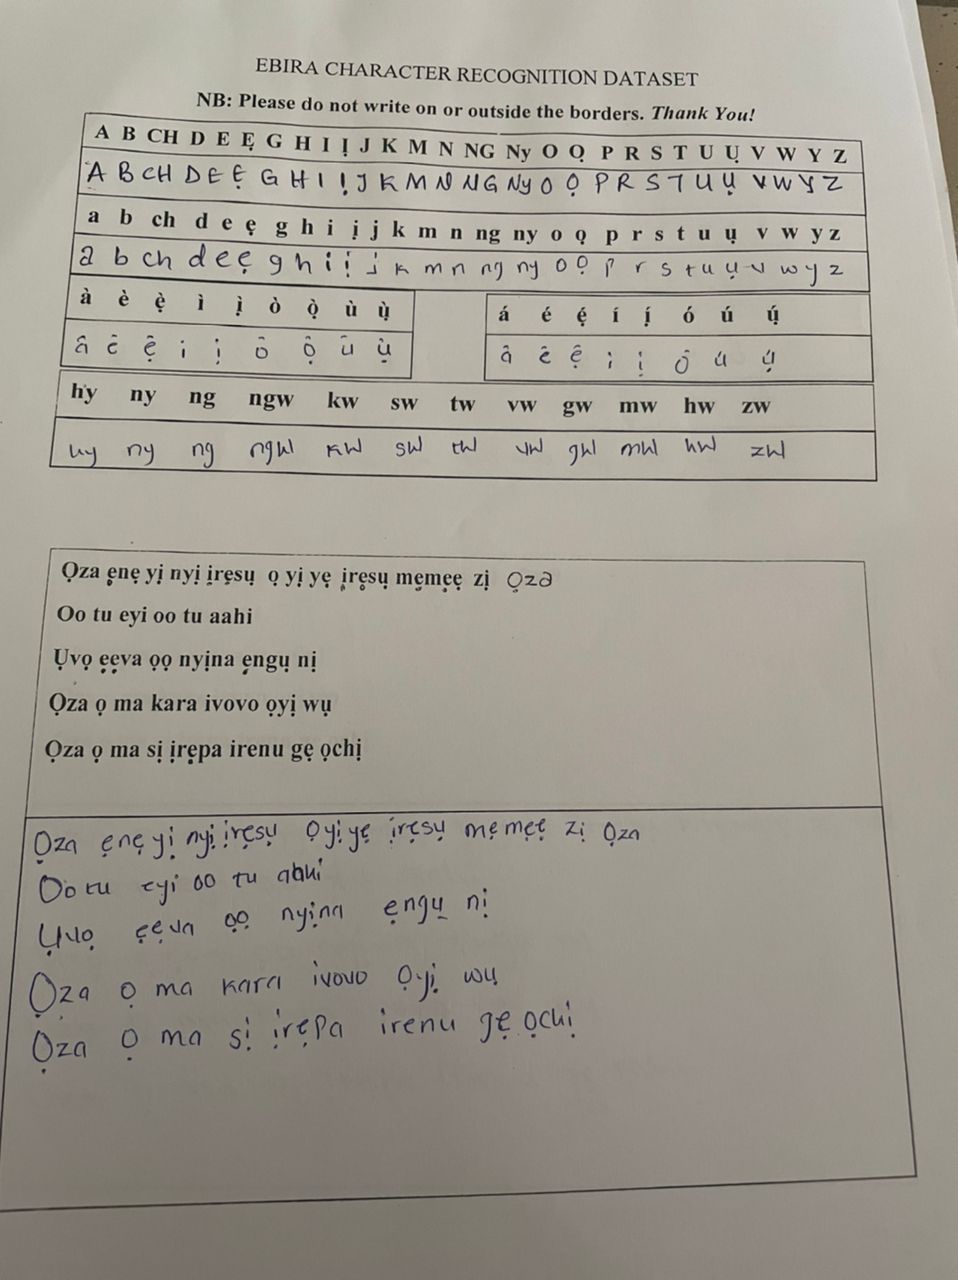 EBIRA CHARACTER RECOGNITION DATASET
NB: Please do not write on or outside the borders. Thank You!
A B CH D E Ẹ G H I Ị J K M N NG Ny O Ọ P R S T U Ụ V W Y Z
A B CH D E Ẹ G H I Ị J K M N NG Ny O Ọ P R S T U Ụ V W Y Z
a b ch d e ẹ g h i ị j k m n ng ny o ọ p r s t u ụ v w y z
a b ch d e ẹ g h i ị j k m n ng ny o ọ p r s t u ụ v w y z
à è ẹ̀ ì ị̀ ò ọ̀ ù ụ̀
â ê ệ i ị ô ộ û ụ̀
á é ẹ́ í ị́ ó ú ụ́
â ê ệ i ị ô ú ụ́
hy ny ng ngw kw sw tw vw gw mw hw zw
hy ny ng ngw kw sw tw vw gw mw hw zw
Ọza ẹnẹ yị nyị ịrẹsụ ọ yị yẹ ịrẹsụ mẹmẹẹ zị ọza
Oo tu eyi oo tu aahi
Ụvọ ẹẹva ọọ nyịna ẹngụ nị
Ọza ọ ma kara ivovo ọyị wụ
Ọza ọ ma sị ịrẹpa irenu gẹ ọchị
Ọza ẹnẹ yị nyị ịrẹsụ ọyị yẹ ịrẹsụ mẹ mẹẹ zị ọza
Oo tu eyi oo tu aahi
Ụvọ ẹẹva ọọ nyịna ẹngụ nị
Ọza ọ ma kara ivovo ọyị wụ
Ọza ọ ma sị ịrẹpa irenu gẹ ọchị